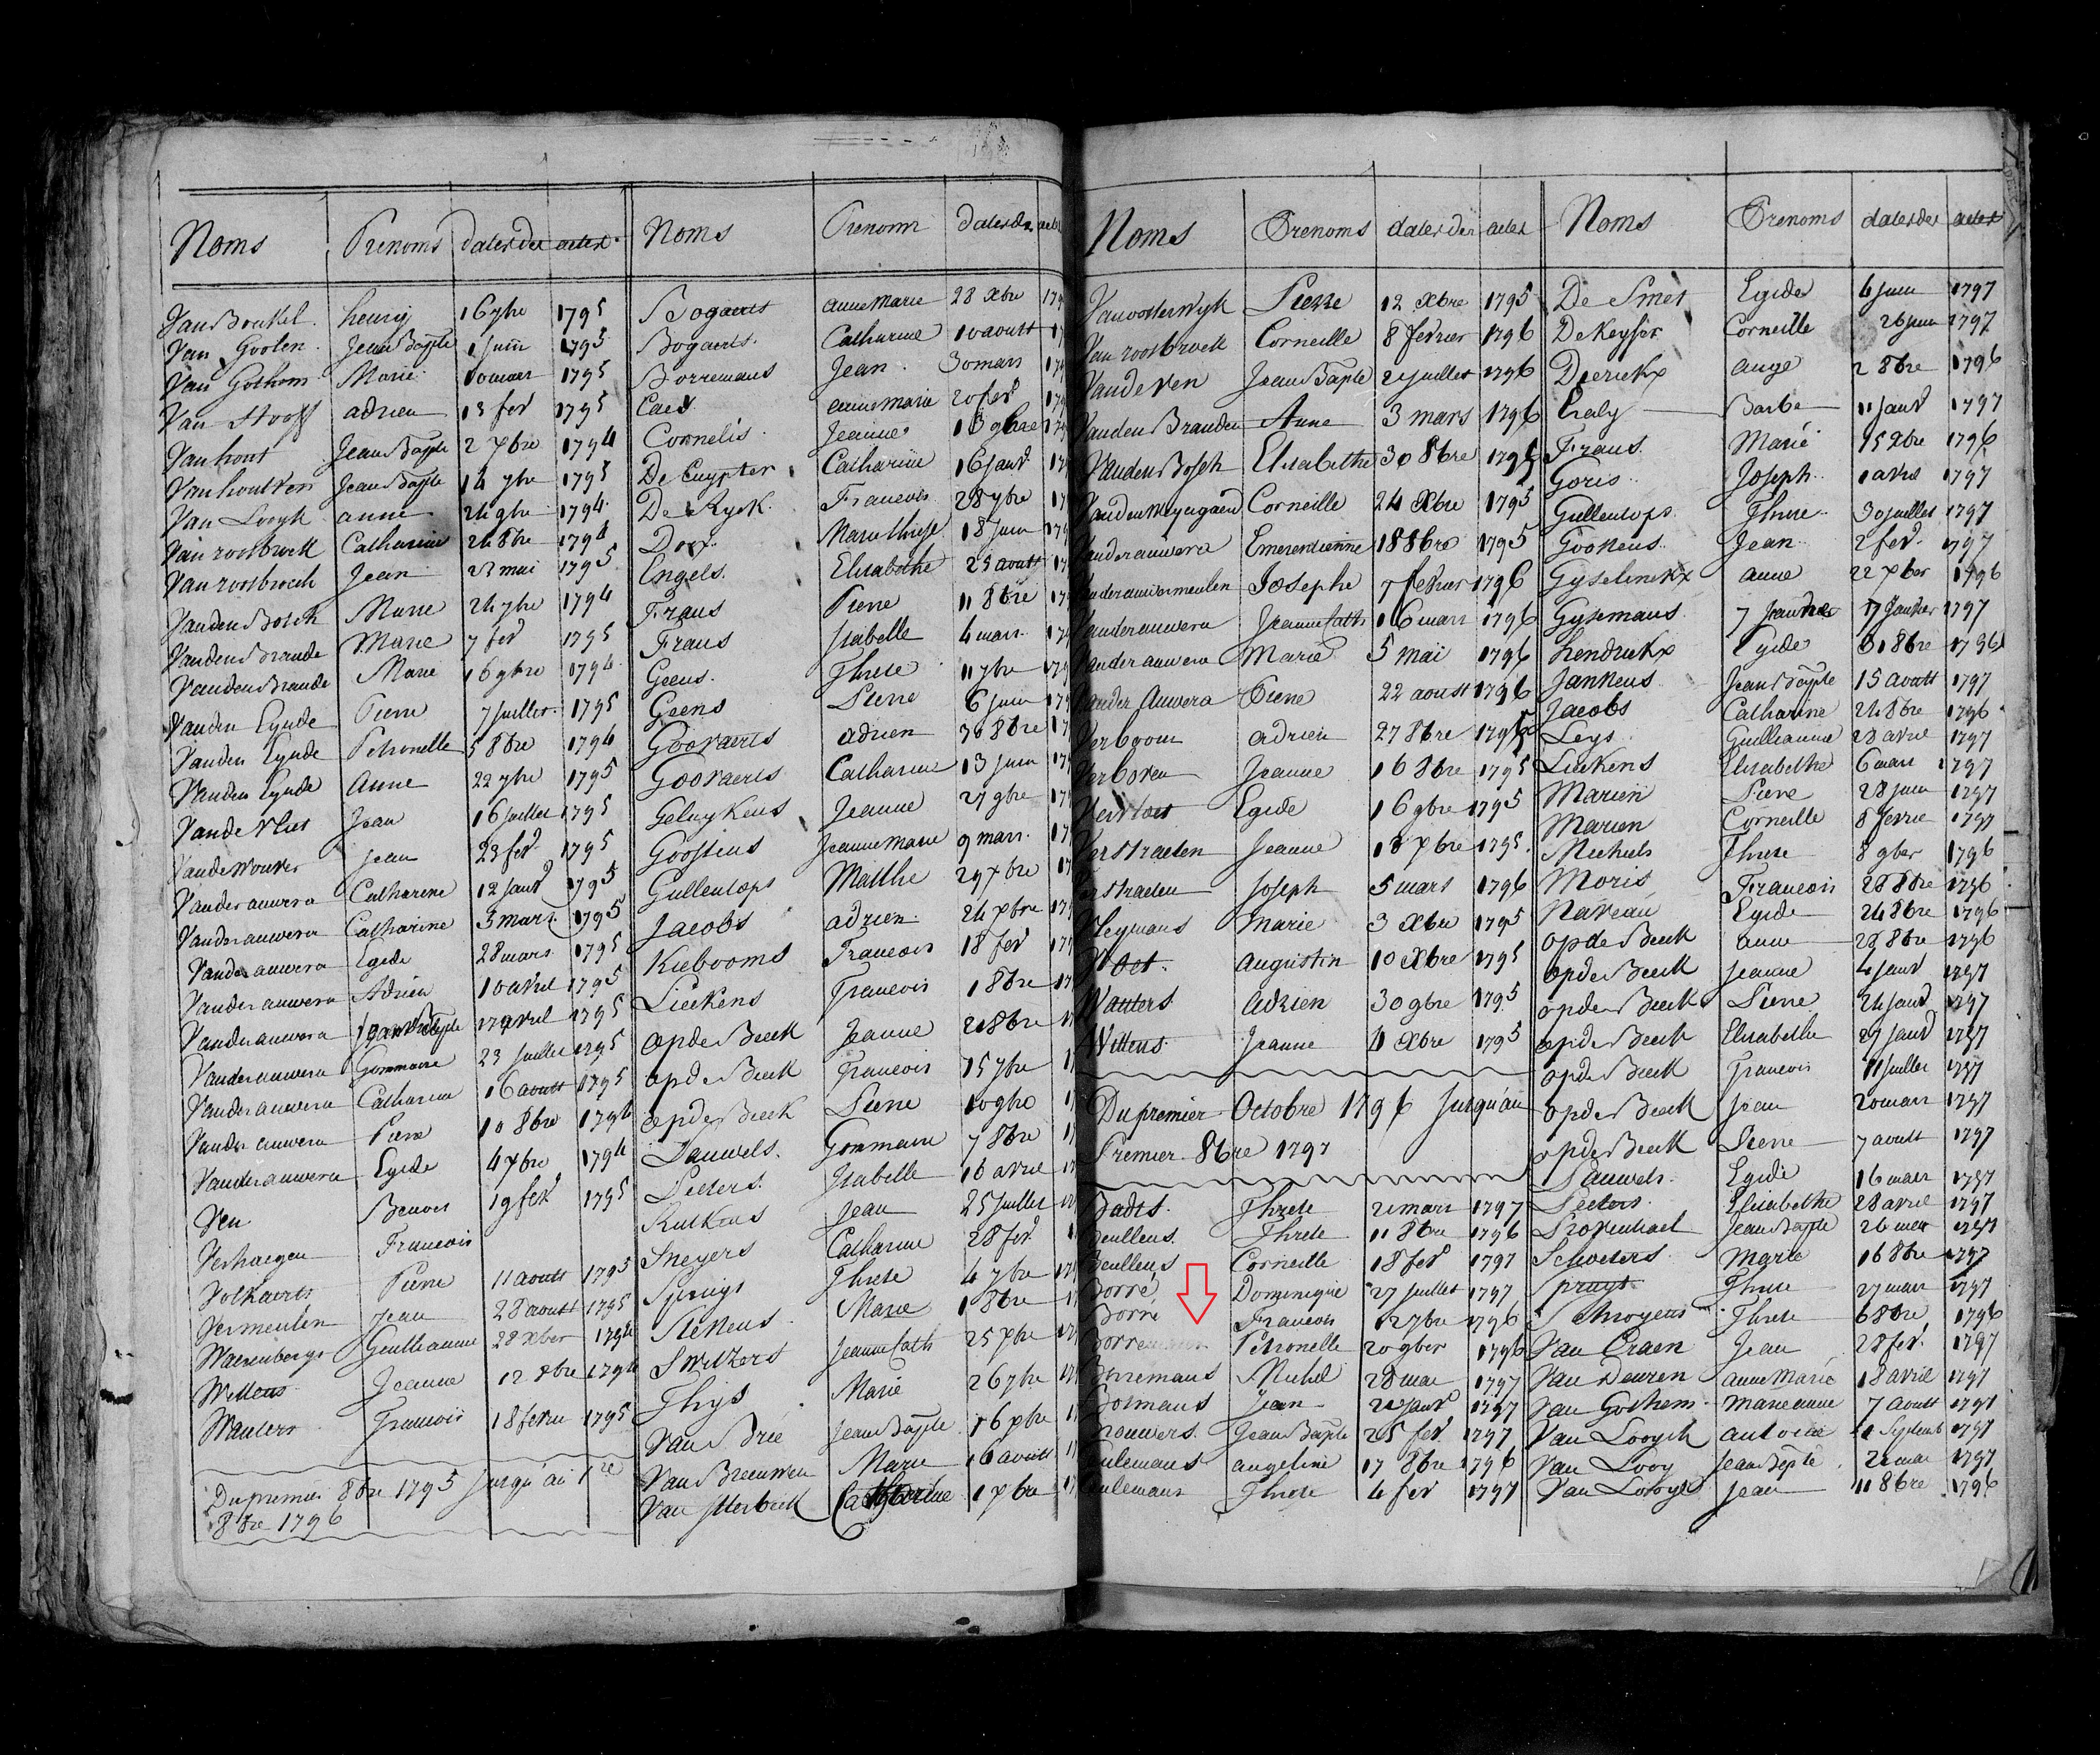 Noms Prenoms dates des actes
Van Boukel henrij 16 7bre 1795
Van Goolen Jean Bapte 1 Juin 1795
Van Gothem Marie 10 mars 1795
Van Hooff adrien 13 fer 1795
Van hout Jean Bapte 2 xbre 1794
Van houtven Jean Bapte 14 7bre 1795
Van Looyk anne 24 9bre 1794
Van roosbroeck Catharine 24 8bre 1794
Van roosbroeck Jean 23 mai 1795
Vanden Bosch Marie 24 7bre 1794
Vanden Brande Marie 7 fer 1795
Vanden Brande Marie 16 9bre 1794
Vanden Eynde Pierre 7 juillet 1795
Vanden Eynde Petronelle 5 8bre 1794
Vanden Eynde Anne 22 7bre 1795
Vande Vliet Jean 16 juillet 1795
Vande Wouwer Jean 23 fer 1795
Vanderauwera Catharine 12 janr 1795
Vanderauwera Catharine 3 mars 1795
Vanderauwera Egide 28 mars 1795
Vanderauwera Adrien 10 avril 1795
Vanderauwera Jean Bapte 17 avril 1795
Vanderauwera Gommaire 23 Juillet 1795
Vanderauwera Catharine 16 aoust 1795
Vanderauwera Pierre 10 8bre 1794
Vanderauwera Egide 4 xbre 1794
Ven 19 fer 1795
Verhaegen Francois
Volkaerts Pierre 11 aoust 1795
Vermeulen Jean 28 aoust 1795
Guilleaume 28 xber 1794
Willems Jeanne 12 8bre 1794
Wauters Francois 18 fevrie 1795
Du premier 8bre 1795 jusqu'au 1re
8bre 1796
Noms Prenom dates des
Bogaerts anne Marie 28 Xbre
Bogaerts Catharine 10 aoust
Borremans Jean 30 mars
Caes anne marie 20 fer
Cornelis Jeanne
De Cuypter Catharine 16 janr
De Ryck Francois 28 7bre
Marie therese 18 juin
Engels Elisabethe 25 aoust
Fraus Pierre 11 8bre
Fraus Isabelle 4 mars
Geens Threse 11 7bre
Geens Pierre 6 juin
Goovaerts adrien 30 8bre
Goovaerts Catharine 13 juin
Geluykens Jeanne 27 9bre
Goossens Jeanne Marie 9 mars
Gullentops Matthe 29 xbre
Jacobs adrien 24 xbre
Kiebooms Francois 18 fer
Liekens Francois 1 8bre
op de Beeck Jeanne 2 8bre
op de Beeck Francois 15 7bre
op de Beeck Pierre 10 9bre
Pauwels Gommaire 7 8bre
Peeters Isabelle 16 avril
Rutkens Jean 25 juillet
Sneyers Catharine 28 fer
Spruijt Threse 4 7bre
Stekens Marie 1 8bre
Switzers Jeanne Cath 25 xbre
Thys Marie 26 7bre
Van Bree Jean Bapte 16 xbre
Van Breeuwen Marie 16 aoust
Van Catharine 1 xbre
Noms Prenoms dates des actes
Vanoosterwyk Pierre 12 Xbre 1795
Van roosbroek Corneille 8 fevrier 1796
Vande ven Jean Bapte 2 juillet 1796
Vanden Branden Anne 3 mars 1796
Vanden Bosch Elisabethe 30 8bre 1795
Vanden Corneille 24 Xbre 1795
Vanderauwera Emerentienne 18 8bre 1795
Josephe 7 fevrier 1796
Vanderauwera Jeanne Cath 16 mars 1796
Vanderauwera Marie 5 mai 1796
Vander Auwera Pierre 22 aoust 1796
Verboom adrien 27 8bre 1795
Verboven Jeanne 16 8bre 1795
Egide 16 9bre 1795
Verstraeten Jeanne 18 xbre 1795
Verstraeten Joseph 5 mars 1796
Vleymans Marie 3 Xbre 1795
Augustin 10 Xbre 1795
Wauters Adrien 30 9bre 1795
Willems Jeanne 4 Xbre 1795
Du premier Octobre 1796 jusqu'au
Premier 8bre 1797
Badts Threse 2 mars 1797
Beullens Threse 11 8bre 1796
Beullens Corneille 18 fer 1797
Borré Dominique 27 juillet 1797
Borré Francois 7bre 1796
Petronelle 20 9ber 1796
Borremans Michel 28 mai 1797
Bosmans Jean 2 janr 1797
Brouwers Jean Bapte 25 fer 1797
Ceulemans angeline 17 8bre 1796
Ceulemans Threse 4 fer 1797
Noms Prenoms dates des actes
De Smet Egide 6 juin 1797
De Keyser Corneille 26 juin 1797
Dierickx ange 2 8bre 1796
Eraly Barbe 11 janr 1797
Fraus Marie 15 Xbre 1796
Goris Joseph 1 avril 1797
Gullentops Threse 30 juillet 1797
Goossens Jean 2 fer 1797
Gyselinckx anne 22 xber 1796
Gysemans 7 17 Janvier 1797
hendrickx Egide 31 8bre 1796
Jankens Jean Bapte 15 aoust 1797
Jacobs Catharine 24 8bre 1796
Leys Guilleaume 23 avril 1797
Liekens Elisabethe 6 mars 1797
Marien Pierre 28 juin 1797
Marien Corneille 8 fevrie 1797
Michiels Threse 8 9ber 1796
Moris Francois 28 8bre 1796
Naveau Egide 24 8bre 1796
op de Beeck anne 28 8bre 1796
op de Beeck Jeanne 4 janr 1797
op de Beeck Pierre 24 janr 1797
op de Beeck Elisabethe 29 janr 1797
op de Beeck Francois 11 juillet 1797
op de Beeck Jean 20 mars 1797
op de Beeck Pierre 7 aoust 1797
Pauwels Egide 16 mars 1797
Peeters Elisabethe 28 avril 1797
Jean Bapte 26 mai 1797
Schoeters Marie 16 8bre 1797
Spruyt Threse 27 mars 1797
Threse 6 8bre 1796
Van Craen Jean 28 fer 1797
Van Deuren anne Marie 18 avril 1797
Van Gothem Marie anne 7 aoust 1797
Van Looyck antoine Septemb 1797
Van Looy Jean Bapte 2 mai 1797
Van Looy Jean 11 8bre 1796